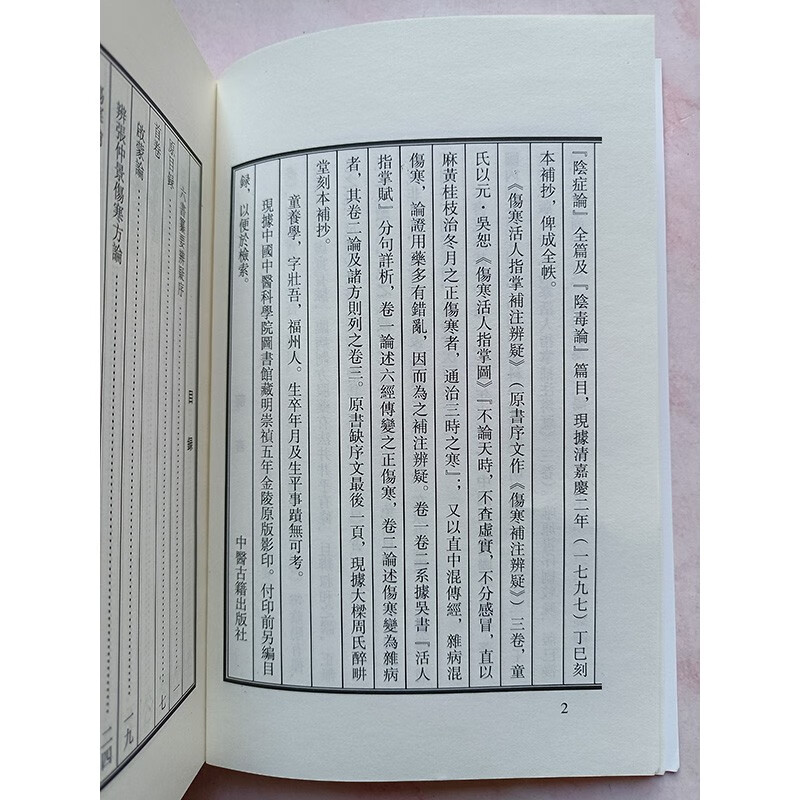 『陰症論』全篇及『陰毒論』篇目，現據清嘉慶二年（一七九七）丁巳刻
本補抄，俾成全帙。
《傷寒活人指掌補注辨疑》（原書序文作《傷寒補注辨疑》）三卷，童
氏以元·吳恕《傷寒活人指掌圖》『不論天時，不查虛實，不分感冒，直以
麻黃桂枝治冬月之正傷寒者，通治三時之寒』；又以直中混傳經，雜病混
傷寒，論證用藥多有錯亂，因而為之補注辨疑。卷一卷二系據吳書『活人
指掌賦』分句詳析，卷一論述六經傳變之正傷寒，卷二論述傷寒變為雜病
者，其卷二論及諸方則列之卷三。原書缺序文最後一頁，現據大樑周氏醉畊
堂刻本補抄。
童養學，字壯吾，福州人。生卒年月及生平事蹟無可考。
現據中國中醫科學院圖書館藏明崇禎五年金陵原版影印。付印前另編目
録，以便於檢索。
中醫古籍出版社
2
目錄
六書纂要辨疑序
總目録
首卷
啟蒙論 一九
辨張仲景傷寒方論 二四